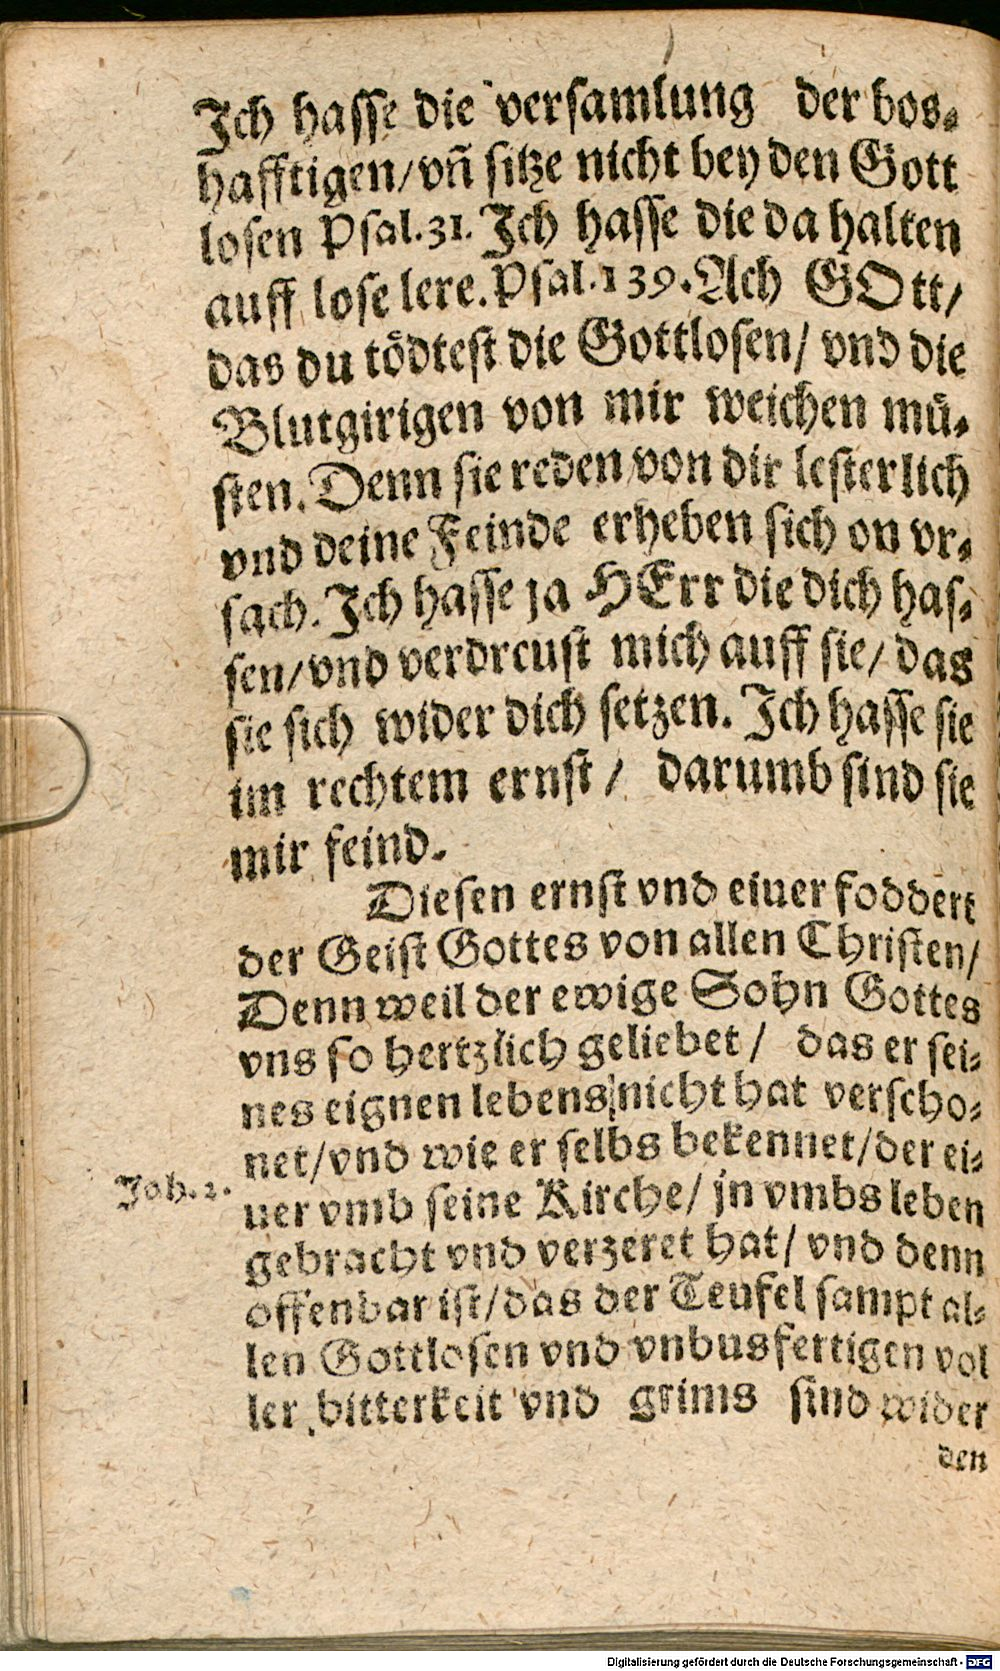 Ich hasse die versamlung der bos-
hafftigen/vñ sitze nicht bey den Gott
losen Psal.31. Ich hasse die da halten
auff lose lere. Psal.139. Ach GOtt/
das du tödtest die Gottlosen/ vnd die
Blutgirigen von mir weichen mü-
sten. Denn sie reden von dir lesterlich
vnd deine Feinde erheben sich on vr-
sach. Ich hasse ja HErr die dich has-
sen/vnd verdreust mich auff sie/ das
sie sich wider dich setzen. Ich hasse sie
im rechtem ernst / darumb sind sie
mir feind.
Diesen ernst vnd eiuer foddert
der Geist Gottes von allen Christen/
Denn weil der ewige Sohn Gottes
vns so hertzlich geliebet / das er sei-
nes eignen lebens nicht hat verscho-
net/vnd wie er selbs bekennet/der ei-
Joh. 2.
uer vmb seine Kirche/ jn vmbs leben
gebracht vnd verzeret hat/ vnd denn
offenbar ist/das der Teufel sampt al-
len Gottlosen vnd vnbusfertigen vol
ler bitterkeit vnd grims sind wider
den
Digitalisierung gefördert durch die Deutsche Forschungsgemeinschaft - DFG